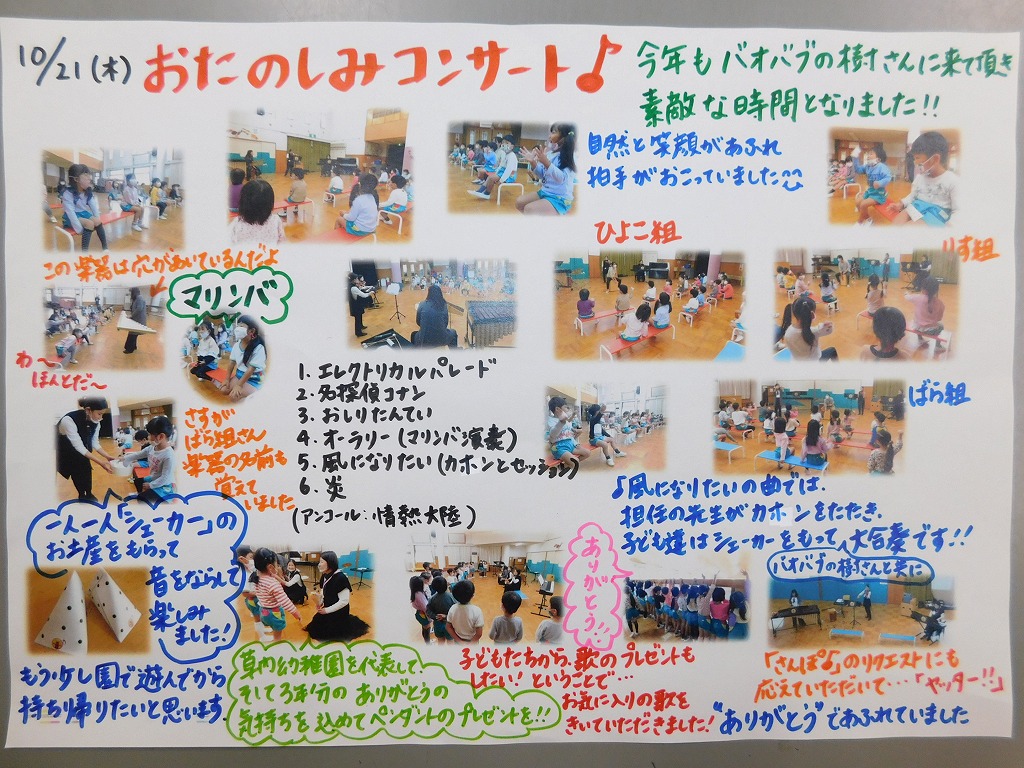 10/21(木) おたのしみコンサート♪
今年もバオバブの樹さんに来て頂き
素敵な時間となりました!!
自然と笑顔があふれ
拍手がおこっていました
この楽器は穴があいているんだよ
マリンバ
ひよこ組
りす組
わ〜
ほんとだ〜
1. エレクトリカルパレード
2. 名探偵コナン
3. おしりたんてい
4. オーラリー(マリンバ演奏)
5. 風になりたい(カホンとセッション)
6. 炎
(アンコール:情熱大陸)
ばら組
さすが
ばら組さん
楽器の名前も
覚えて
いました
一人一人「シェーカー」の
お土産をもらって
音をならして
楽しみ
ました!
♪風になりたいの曲では、
担任の先生がカホンをたたき、
子ども達はシェーカーをもって、大合奏です!!
バオバブの樹さんと共に
ありがとう!!
もう少し園で遊んでから
持ち帰りたいと思います。
草内幼稚園を代表して
そして3年分のありがとうの
気持ちを込めてペンダントのプレゼントを!!
子どもたちから、歌のプレゼントも
したい!ということで…
お気に入りの歌を
きいていただきました!
「さんぽ♪」のリクエストにも
応えていただいて…「ヤッター!!」
"ありがとう"であふれていました